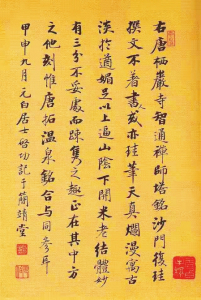 右唐栖巖寺智通禅師塔銘沙門復珪
撰文不著書或亦珪筆天真爛漫寓古
淡於遒媚足以上逼山陰下開米老結體妙
有三分不妥處而踈隽之趣正在其中方
之他刻惟唐拓温泉銘合与同参耳
甲申九月元白居士啓功記于簡靖堂